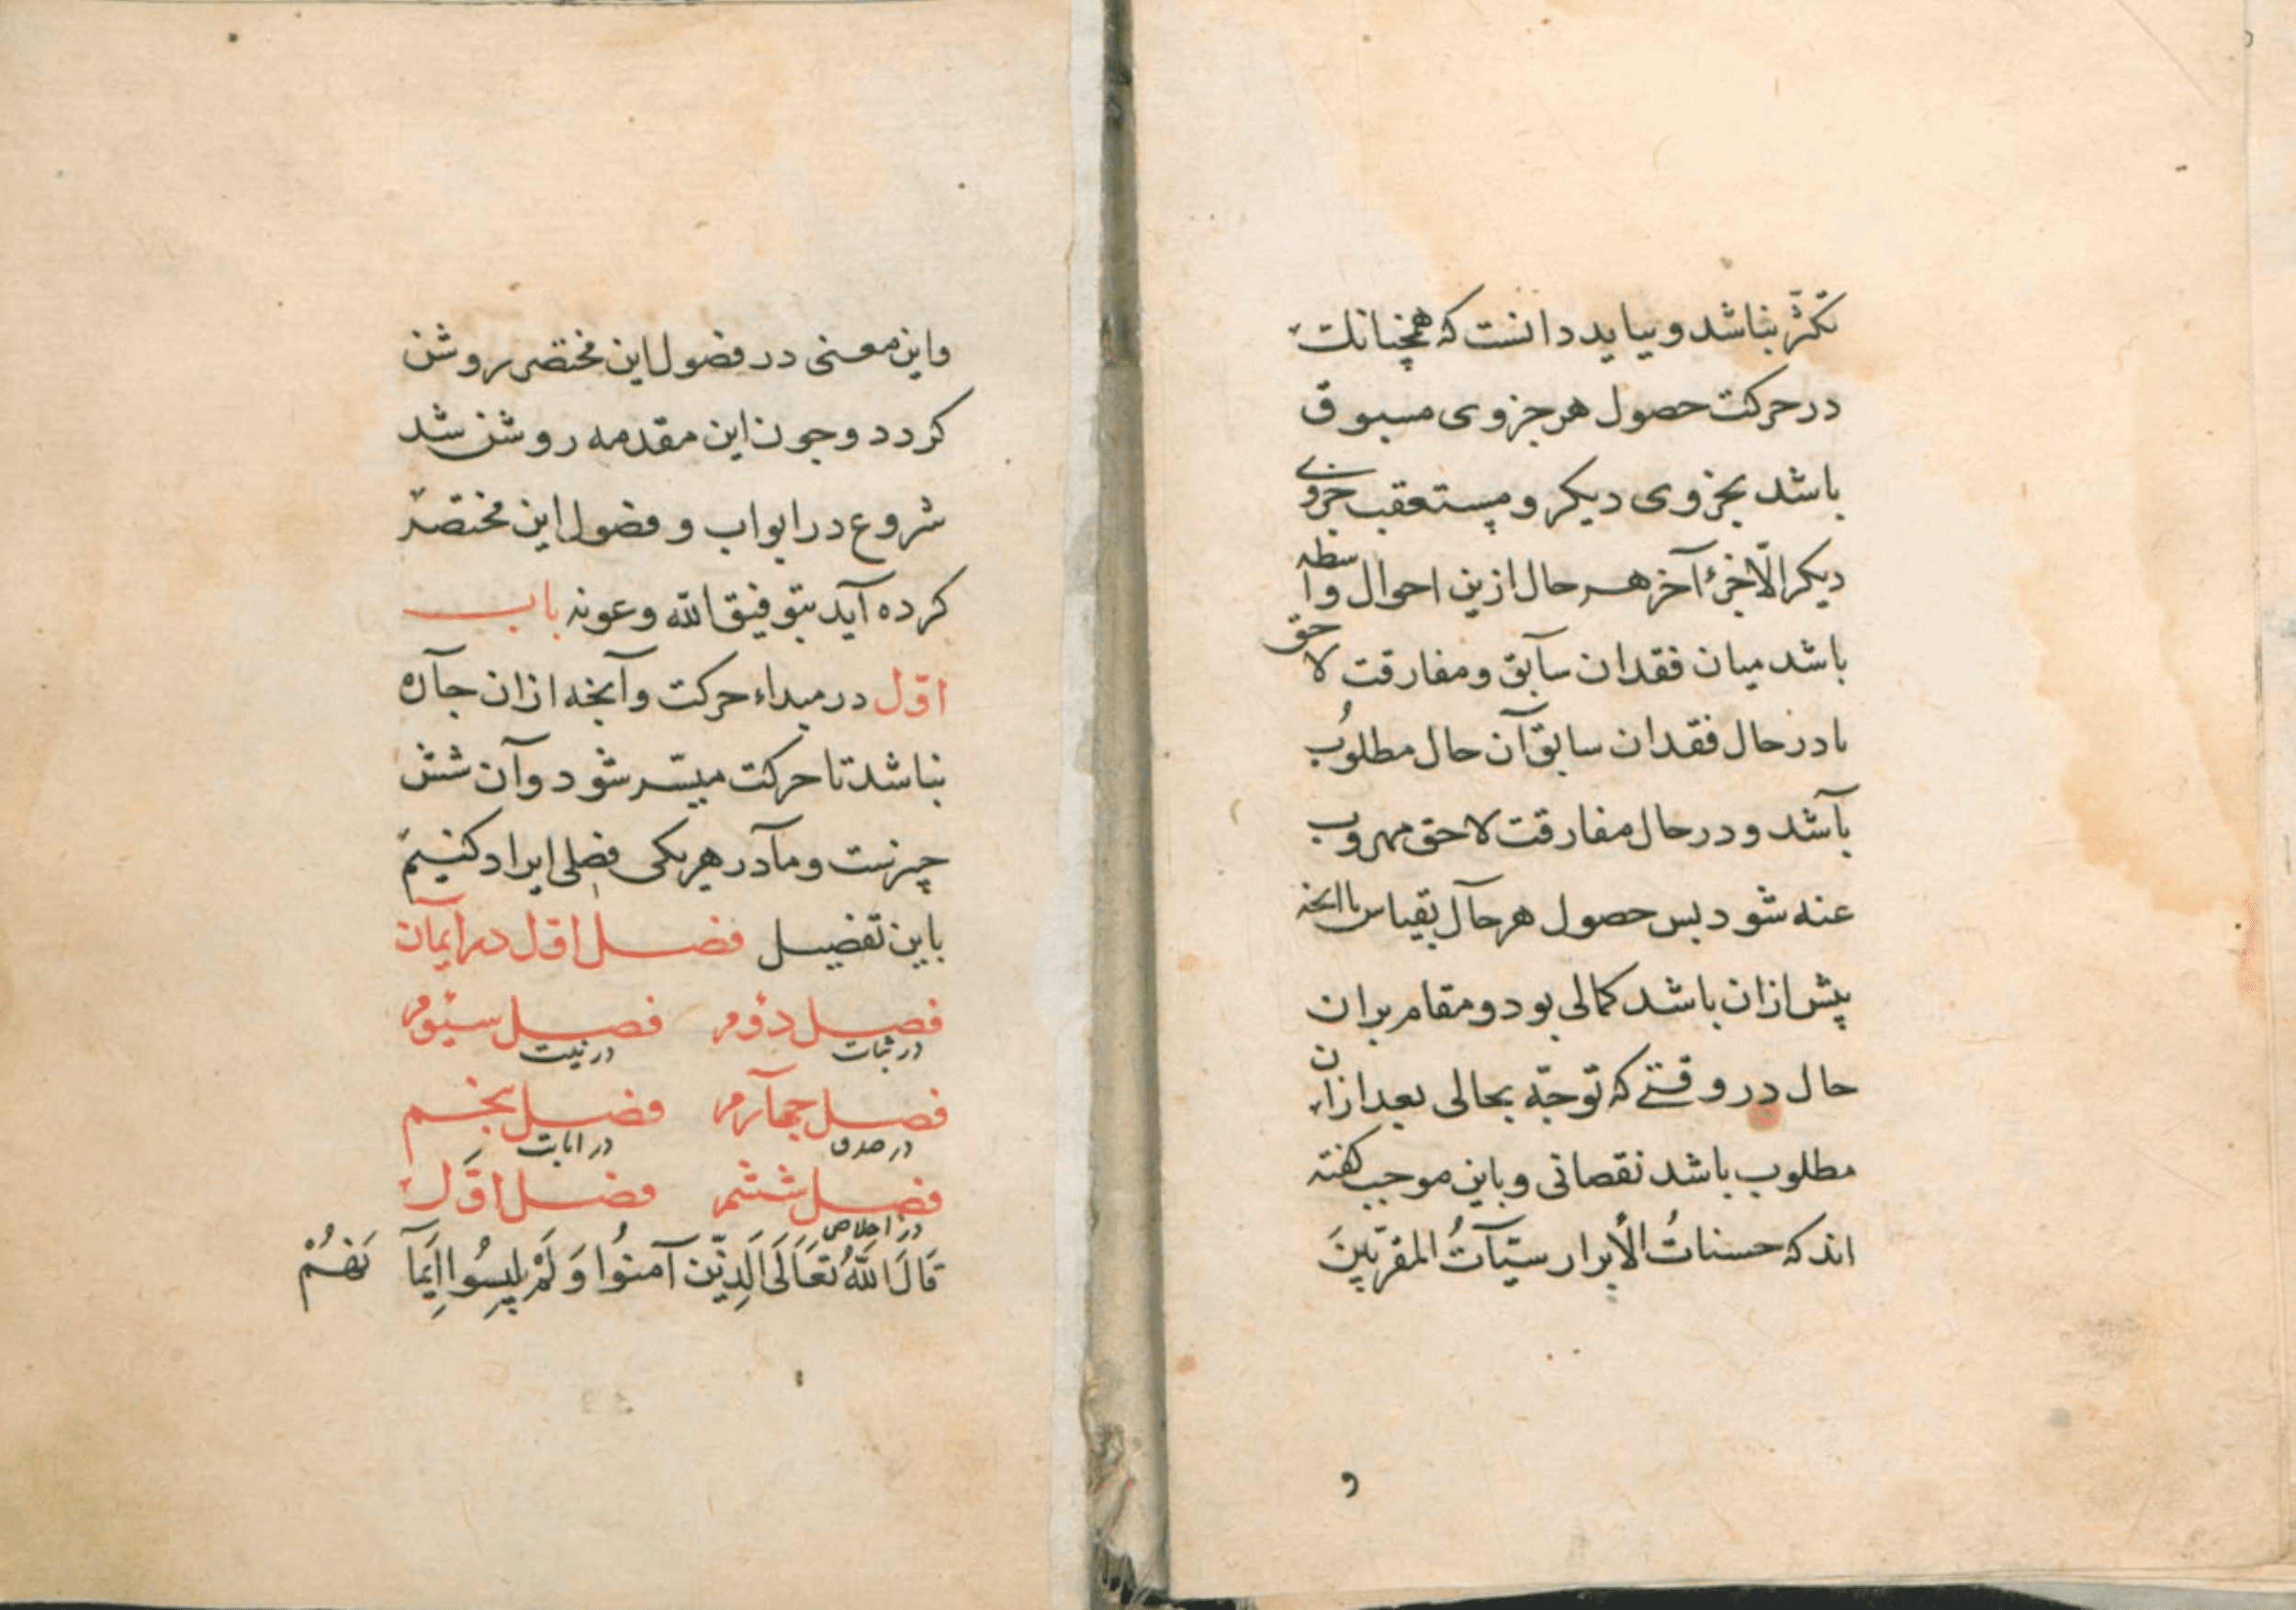 تکثّر نباشد و بباید دانست که همچنانک
در حرکت حصول هر جزوی مسبوق
باشد بجزوی دیکر و مستعقب جزوی
دیکر الّا جزءٔ آخر هر حال ازین احوال واسطه
باشد میان فقدان سابق و مفارقت لاحق
تا در حال فقدان سابق آن حال مطلوبُ
باشد و در حال مفارقت لاحق مهروب
عنه شود بس حصول هر حال بقیاس با انجه
پیش ازان باشد کمالی بود و مقام بران
حال در وقتی که توجّه بحالی بعد ازان
مطلوب باشد نقصانی و باین موجب کفته
اند که حسناتُ الأبرار سیّآتُ المقرّبینَ
و
واین معنی در فصول این مختصر روشن
کردد و جون این مقدمه روشن شد
شروع در ابواب و فصول این مختصر
کرده آید بتوفیق الله وعونه باب
اوّل در مبداء حرکت و آنجه ازان جاره
نباشد تا حرکت میسّر شود و آن شش
چیزست و ما در هر یکی فصلی ایراد کنیم
باین تفصیل فصل اوّل در ایمان
فصل دوم در ثبات فصل سیوم در نیت
فصل جهارم در صدق فصل بنجم در انابت
فصل ششم در اخلاص فصل اوّل
قَالَ اللّٰهُ تَعَالَى الَّذِیْنَ آمَنُوا وَلَمْ یلبِسُوا اِیمَآ نَهُمْ